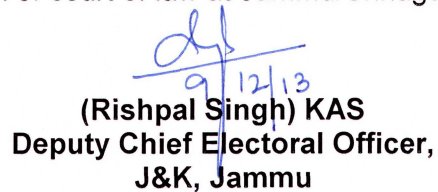 9/12/13
(Rishpal Singh) KAS
Deputy Chief Electoral Officer,
J&K, Jammu